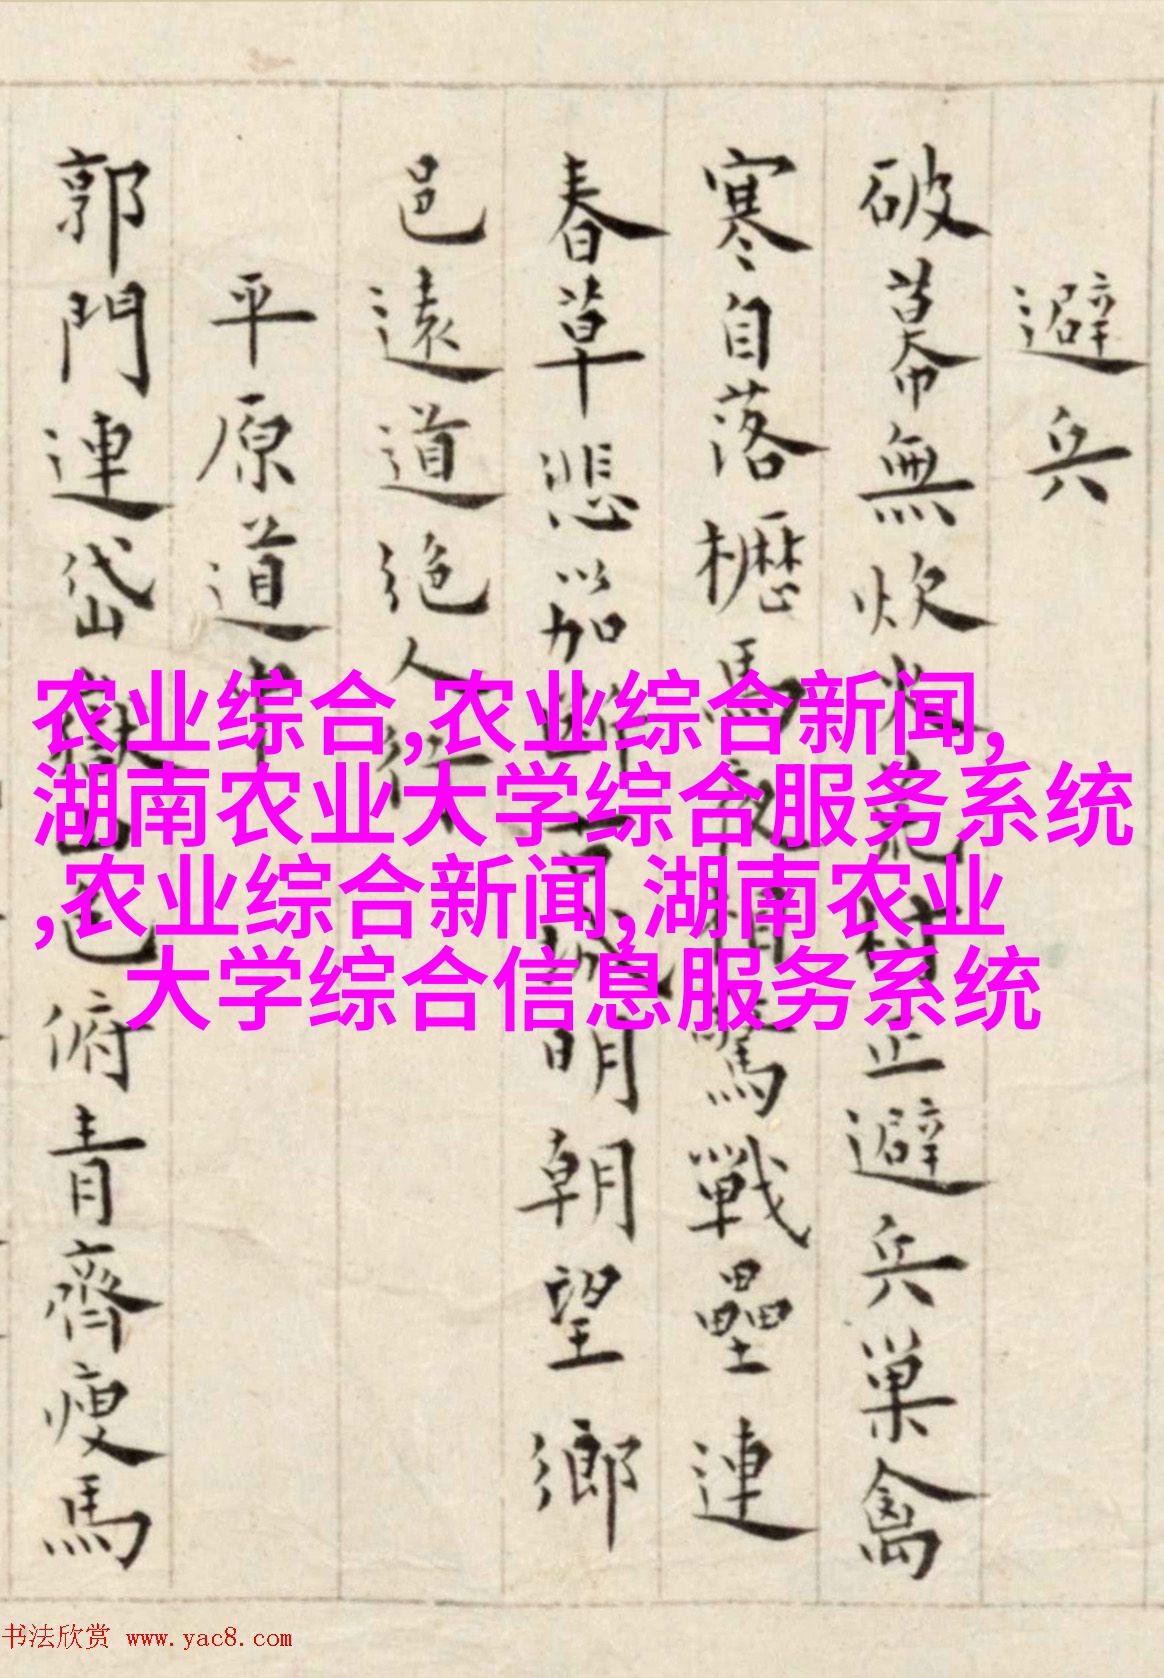 避兵
破幕無炊火荒村正避兵巢禽
寒自落櫪馬夜相驚戰壘連
春草悲笳斷城明朝望鄉
邑遠道絕人行
平原道中
郭門連岱嶽色俯青齊瘦馬
农业综合,农业综合新闻,
湖南农业大学综合服务系统
,农业综合新闻,湖南农业
大学综合信息服务系统
书法欣赏 www.yac8.com